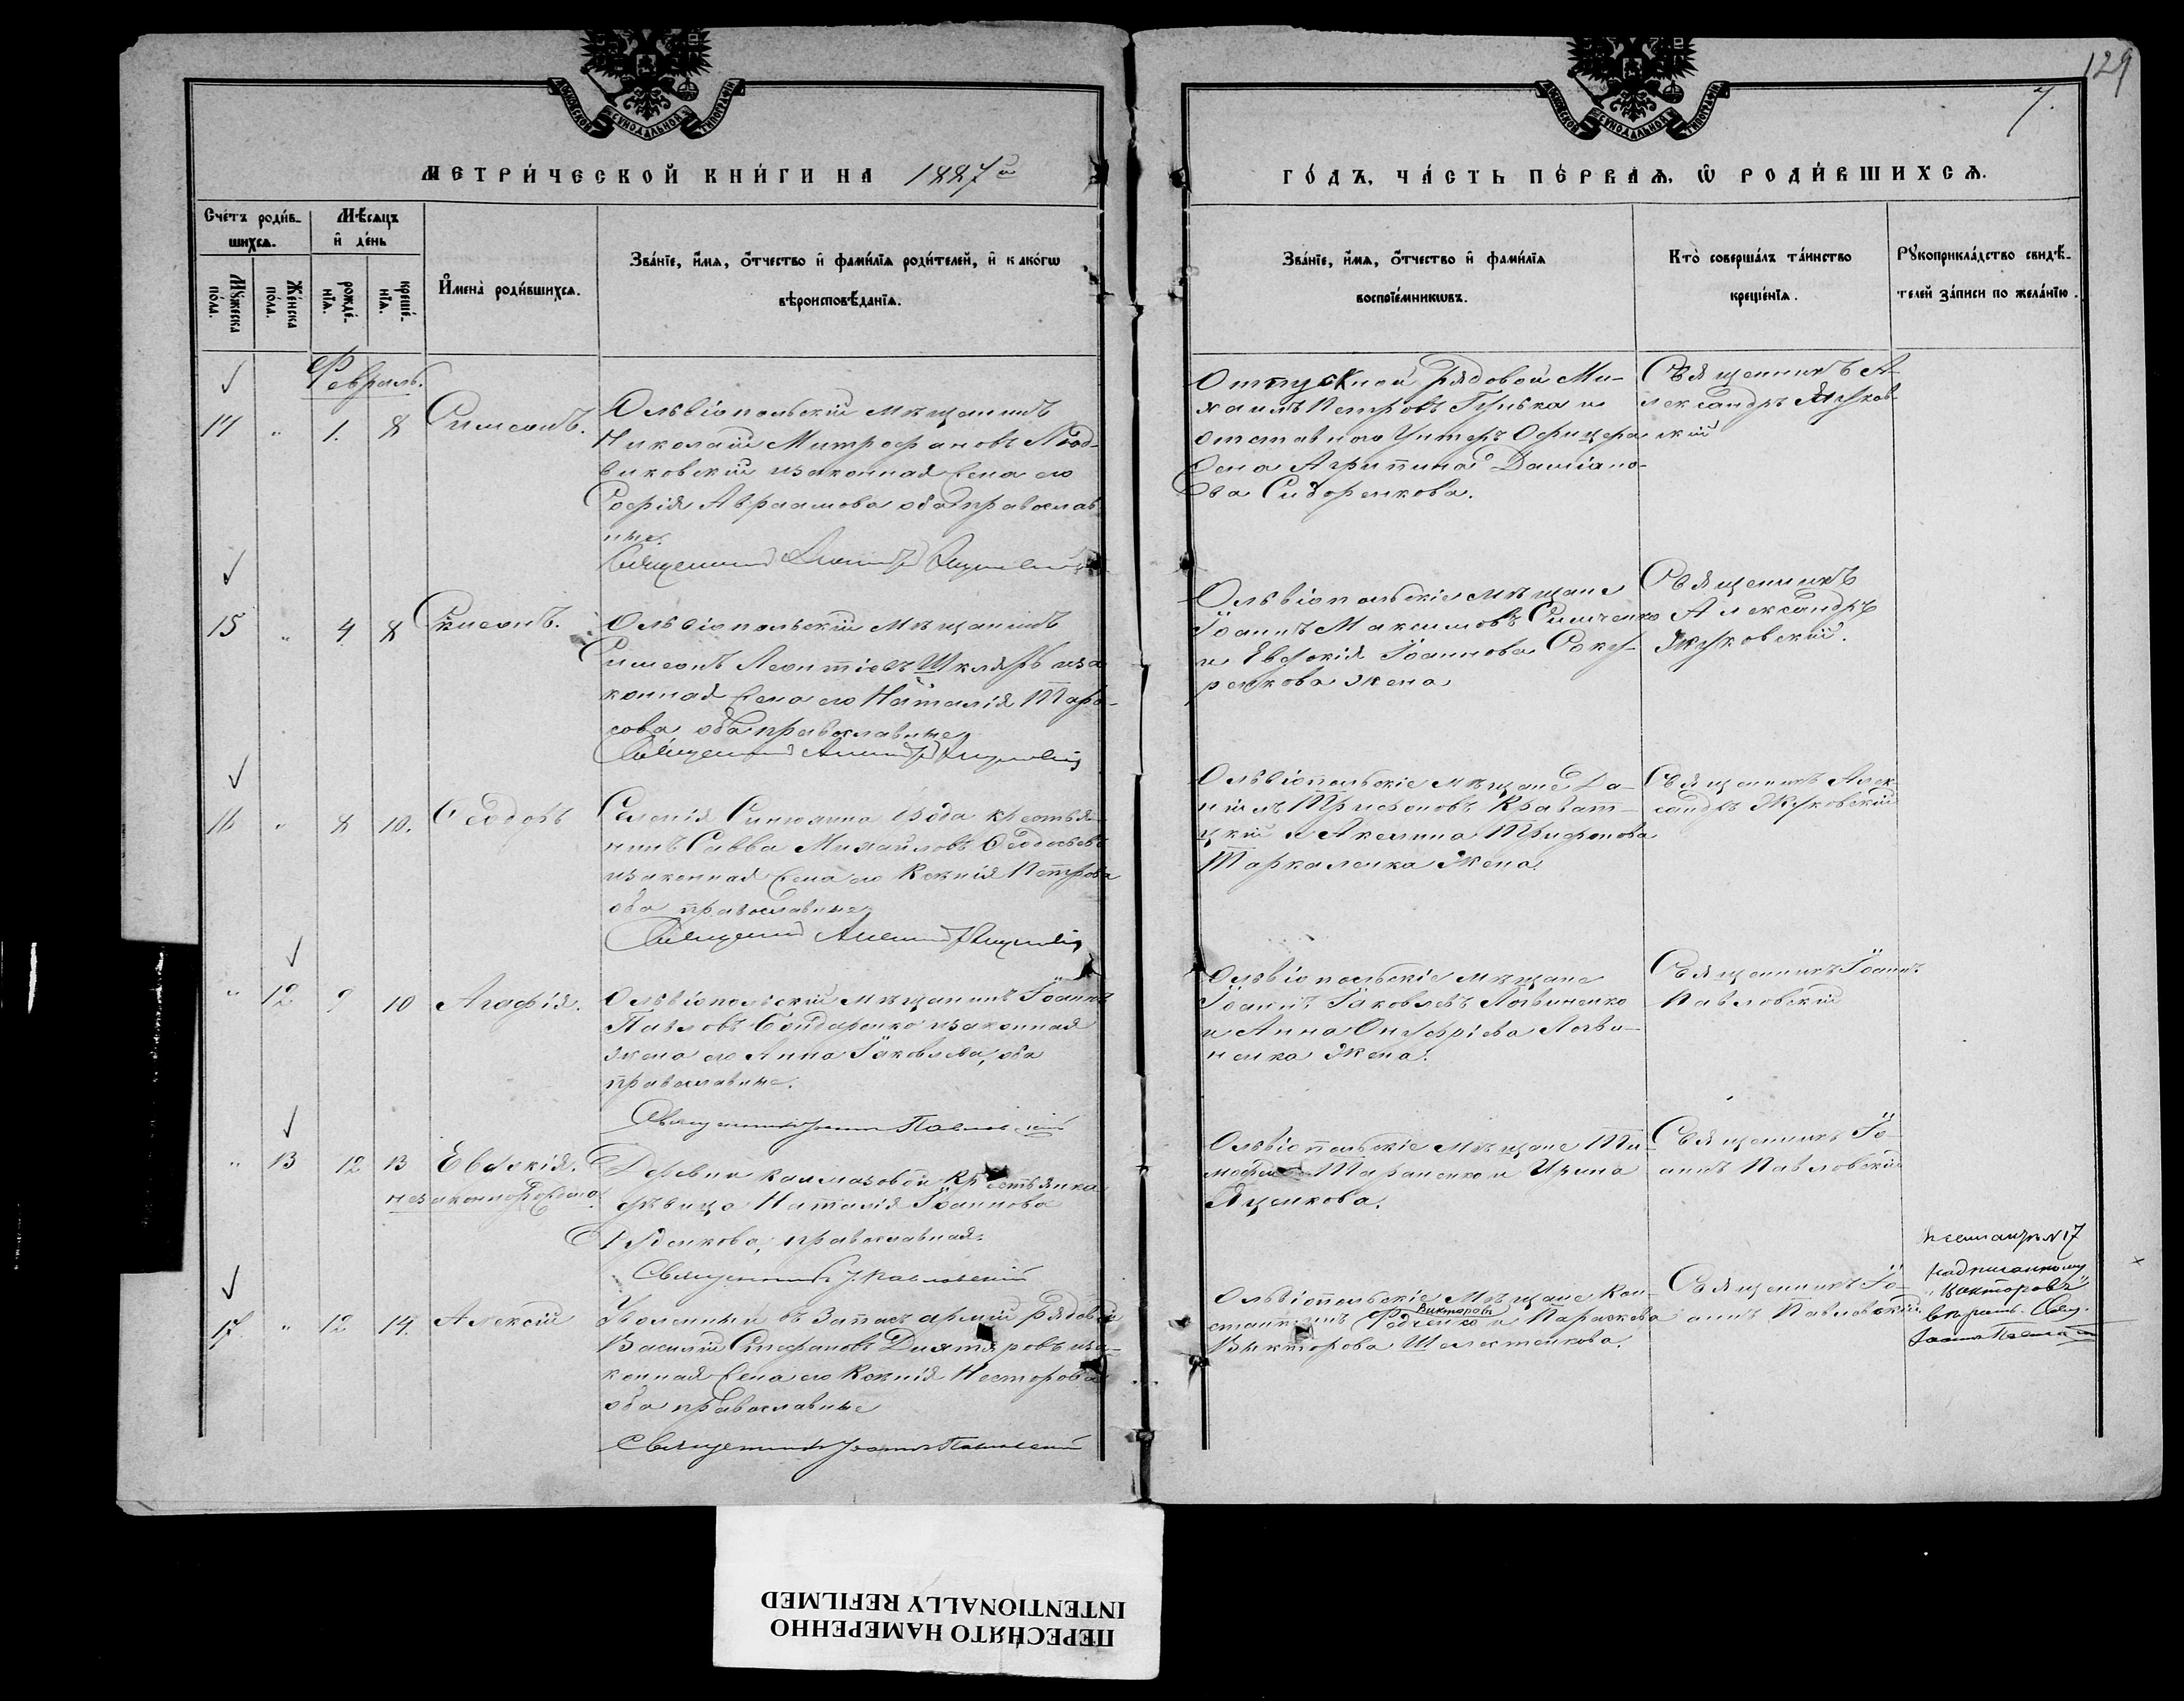 129
7.
МОСКОВСКОЙ СѴНОДАЛЬНОЙ ТИПОГРАФІИ
МОСКОВСКОЙ СѴНОДАЛЬНОЙ ТИПОГРАФІИ
МЕТРИ́ЧЕСКОЙ КНИ́ГИ НА 1887й
ГО́ДЪ, ЧА́СТЬ ПЕ́РВАѦ, Ѡ҆ РОДИ́ВШИХСѦ.
Сче́тъ роди́в-
шихсѧ.
Мѣ́сѧцъ
и҆ де́нь
Мꙋ́жеска
по́ла.
Же́нска
по́ла.
рожде́-
нїѧ.
креще́-
нїѧ.
И҆мена̀ роди́вшихсѧ.
Зва́нїе, и҆́мѧ, ѻ҆́тчество и҆ фами́лїѧ роди́телей, и҆ како́гѡ
вѣроисповѣ́данїѧ.
Зва́нїе, и҆́мѧ, ѻ҆́тчество и҆ фами́лїѧ
воспрїе́мникѡвъ.
Кто̀ соверша́лъ та́инство
креще́нїѧ.
Рꙋкоприкла́дство свидѣ́-
телей за́писи по жела́нїю.
Февраль.
14 " 1. 8 Симеонъ.
Ольвіопольскій мѣщанинъ
Николай Митрофановъ Люд-
виковскій изаконная жена его
Софія Авраамова оба православ
ные.
Священникъ
Отпускной рядовой Ми-
хаилъ Петровъ Гулька и
отставного Унтеръ Офицера
жена Агрипина Даміано-
ва Сидоренкова.
Священникъ А-
лександръ Жуков-
скій
15 " 4 8 Симеонъ.
Ольвіопольскій мѣщанинъ
Симеонъ Леонтіевъ Шкляръ иза
конная жена его Наталія Тара-
сова оба православные
Священникъ
Ольвіопольскіе мѣщане
Іоаннъ Максимовъ Симченко
и Евдокія Іоаннова
жена
Священникъ
Александръ
Жуковскій.
16 " 8 10. Феодоръ
Селенія Синюхина брода крестья-
нинъ Савва Михайловъ Феодосьевъ
изаконная жена его Ксенія Петрова
оба православные
Священникъ
Ольвіопольскіе мѣщане Да-
ніилъ Трифоновъ Кроват-
цкій и Акелина Трифонова
жена.
Священникъ Алек
сандръ Жуковскій
" 12 9 10 Агафія.
Ольвіопольскій мѣщанинъ Іоаннъ
Павловъ Бондаренко изаконная
жена его Анна Іаковлева, оба
православные.
Священникъ Іоаннъ Павловскій
Ольвіопольскіе мѣщане
Іоаннъ Іаковлевъ Логвиненко
и Анна Онуфріева Логви-
ненка жена.
Священникъ Іоаннъ
Павловскій
" 13 12 13 Евдокія.
незаконорожденна.
Деревни Калмазовой крестьянка
дѣвица Наталія Іоаннова
Руденкова, православная.
Священникъ І. Павловскій
Ольвіопольскіе мѣщане Ти-
мофей Тараненко и Ирина
Яценкова.
Священникъ Іо-
аннъ Павловскій
17. " 12 14. Алексій
Уволенный въ Запасъ арміи рядовой
Василій Стефановъ Дихтяровъ иза-
конная жена его Ксенія Несторова
оба православные
Священникъ Іоаннъ Павловскій
Ольвіопольскіе мѣщане Кон-
стантинъ Викторовъ Федченко и Параскева
Викторова Шелестенкова.
Священникъ Іо-
аннъ Павловскій.
№ 17
надписанному
„Викторовъ"
Свящ.
Іоаннъ Павловскій
ПЕРЕСНЯТО НАМЕРЕННО
INTENTIONALLY REFILMED